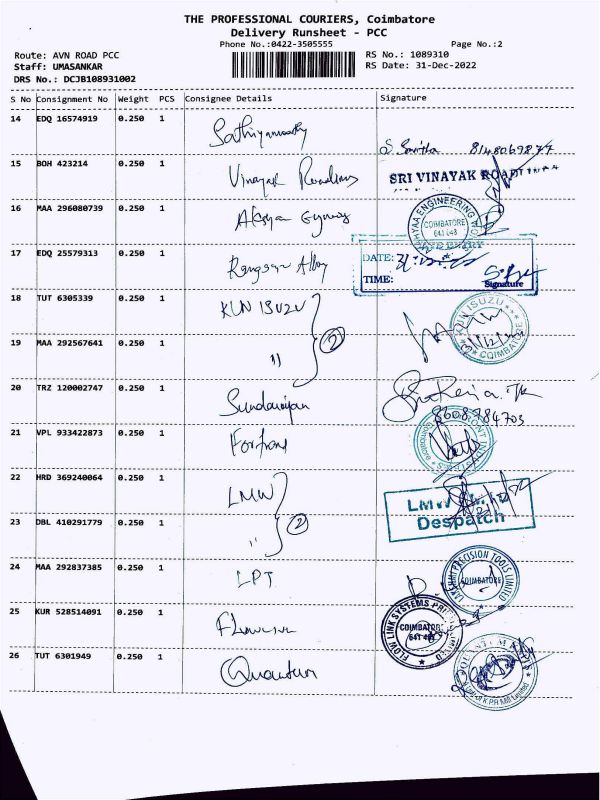 THE PROFESSIONAL COURIERS, Coimbatore
Delivery Runsheet - PCC
Phone No.:0422-3505555
Page No.:2
Route: AVN ROAD PCC
RS No.: 1089310
Staff: UMASANKAR
RS Date: 31-Dec-2022
DRS No.: DCJB108931002
S No Consignment No Weight PCS Consignee Details Signature
14 EDQ 16574919 0.250 1
8148069877
15 BOH 423214 0.250 1 Vinayak
SRI VINAYAK ROAD
16 MAA 296080739 0.250 1
ENGINEERING
COIMBATORE
641 048
17 EDQ 25579313 0.250 1 Alloy
DATE:
TIME:
Signature
18 TUT 6305339 0.250 1 KLN ISUZU
KLN ISUZU
COIMBATORE
19 MAA 292567641 0.250 1 " 2
20 TRZ 120002747 0.250 1
8608784703
21 VPL 933422873 0.250 1
22 HRD 369240064 0.250 1 LMW
LMW
Despatch
23 DBL 410291779 0.250 1 " 2
24 MAA 292837385 0.250 1 LPT
PRECISION TOOLS LIMITED
COIMBATORE
25 KUR 528514091 0.250 1
FLOW LINK SYSTEMS
COIMBATORE
26 TUT 6301949 0.250 1 Quantum
K.P.R Mill Limited